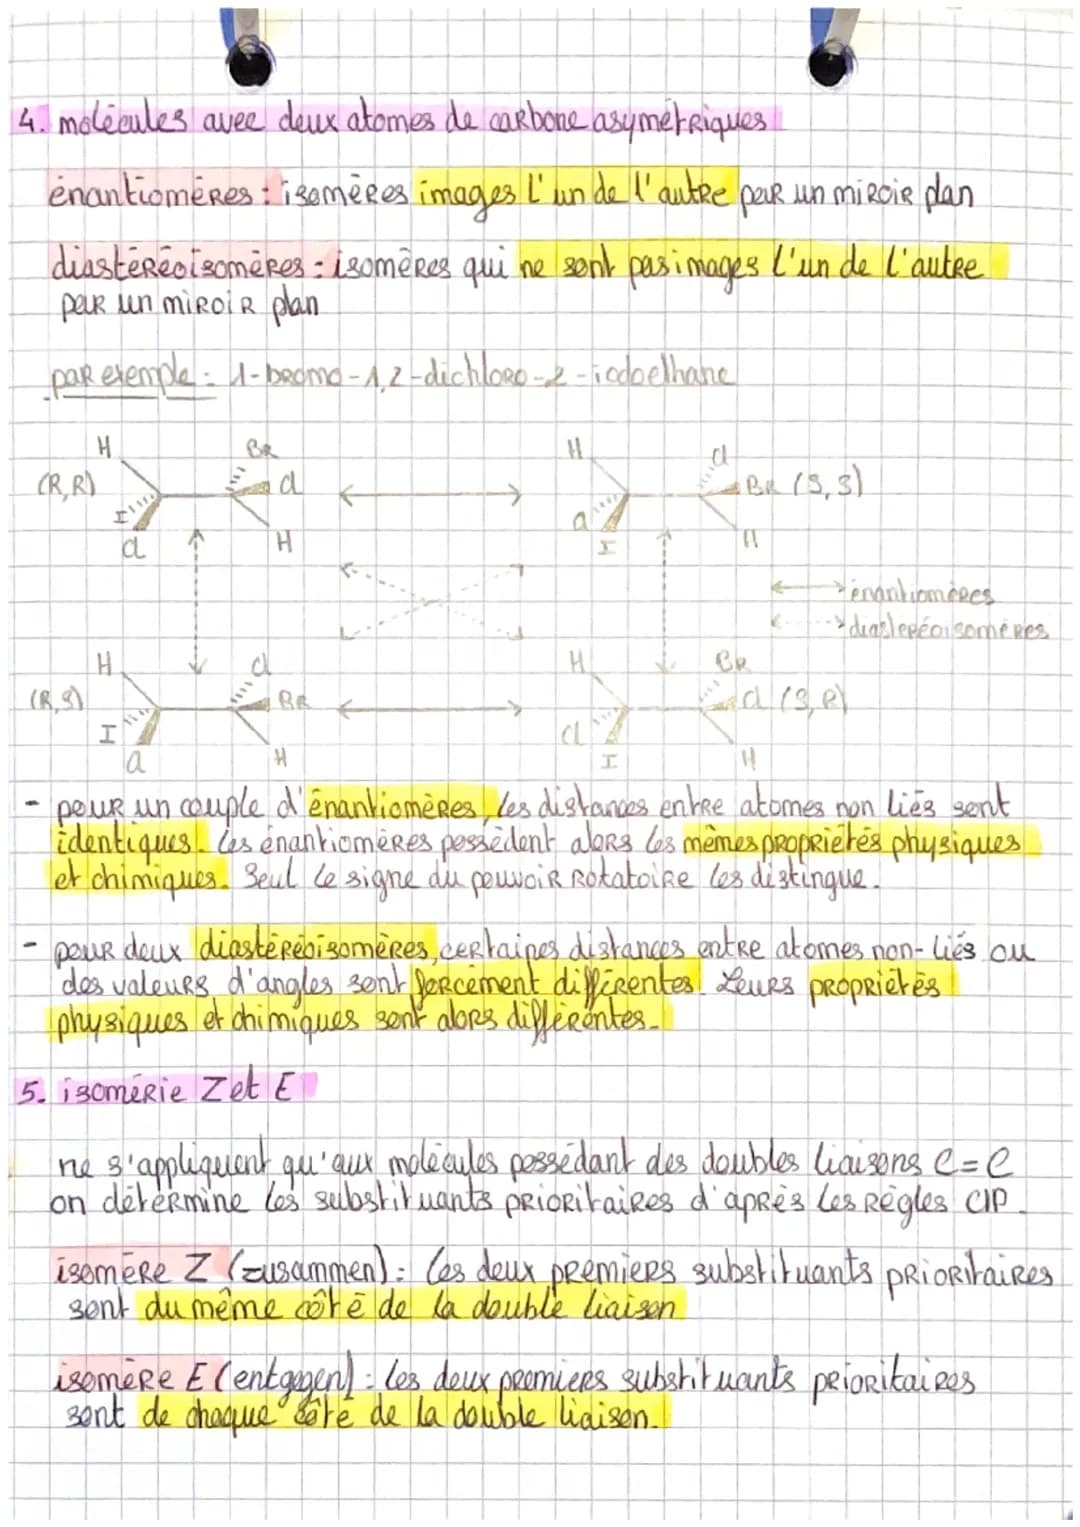 4. molécules avec deux atomes de carbone asymétriques
énantiomères : isomères images l'un de l'autre par un miroir plan
diastéréoisomères : isomères qui ne sont pas images l'un de l'autre
par un miroir plan
par exemple : 1-bromo-1,2-dichloro-2-iodoethane
H Br H Cl
(R,R) Cl Br (S,S)
I Cl
Cl H I H
énantiomères
diastéréoisomères
H Cl H Br
(R,S) Br Cl (S,R)
I Cl
Cl H I H
- pour un couple d'énantiomères, les distances entre atomes non liés sont
identiques. Les énantiomères possèdent alors les mêmes propriétés physiques
et chimiques. Seul le signe du pouvoir rotatoire les distingue.
- pour deux diastéréoisomères, certaines distances entre atomes non-liés ou
des valeurs d'angles sont forcément différentes. Leurs propriétés
physiques et chimiques sont alors différentes.
5. isomérie Z et E
ne s'appliquent qu'aux molécules possédant des doubles liaisons C=C
on détermine les substituants prioritaires d'après les règles CIP.
isomère Z (zusammen) : les deux premiers substituants prioritaires
sont du même côté de la double liaison
isomère E (entgegen) : les deux premiers substituants prioritaires
sont de chaque côté de la double liaison.